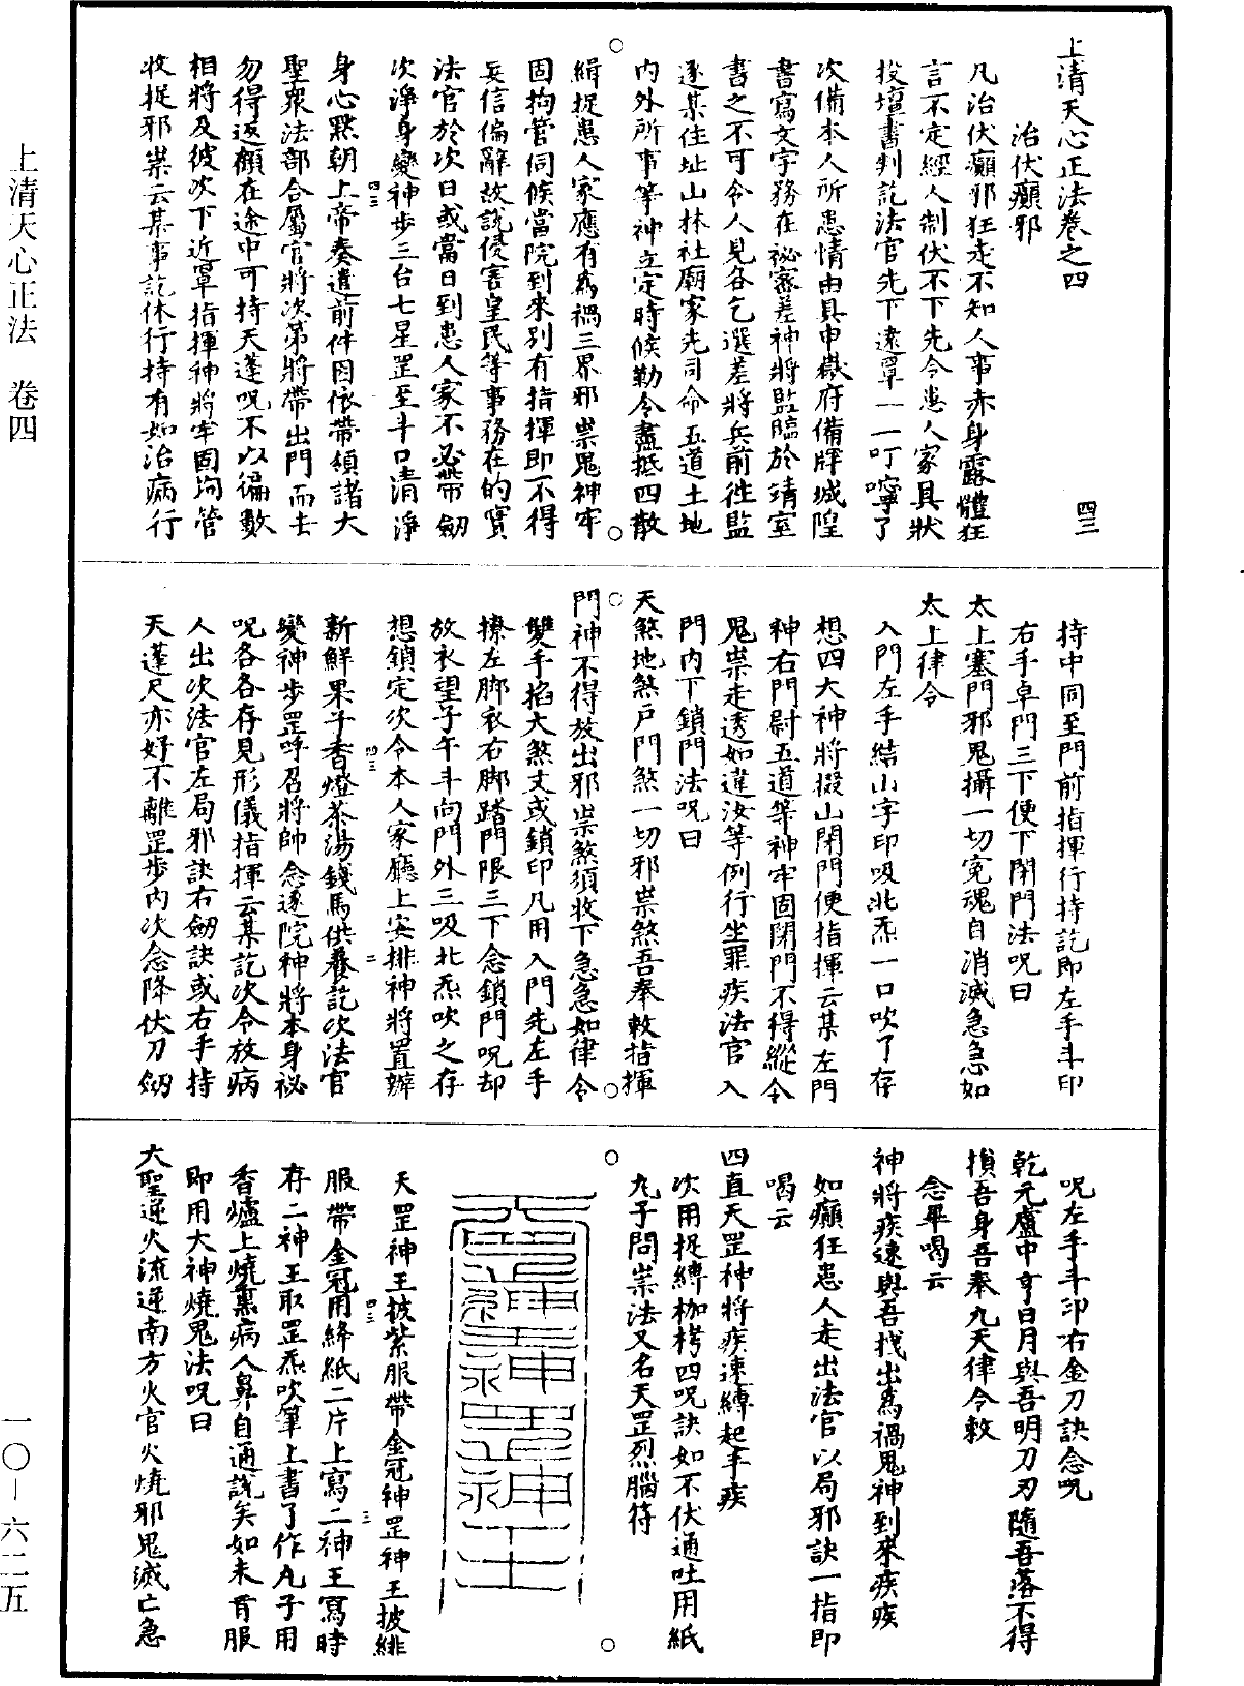 上清天心正法卷之四
四三
治伏癲邪
凡治伏癲邪狂走不知人事赤身露體狂
言不定經人制伏不下先令患人家具狀
投壇書判訖法官先下遠罩一一叮嚀了
次備本人所患情由具申嶽府備牒城隍
書寫文字務在祕審差神將監臨於靖室
書之不可令人見各乞選差將兵前徃監
逐某住址山林社廟家先司命五道土地
內外所事等神立定時候勒令盡抵四散
緝捉患人家應有爲禍三界邪祟鬼神牢
固拘管伺候當院到來別有指揮即不得
妄信偏辭故說侵害皇民等事務在的實
法官於次日或當日到患人家不必帶劒
次淨身變神步三台七星罡至斗口清淨
四三
身心黙朝上帝奏遣前件因依帶領諸大
聖衆法部合屬官將次第將帶出門而去
勿得返顧在途中可持天蓬呪不以徧數
相將及彼次下近罩指揮神將牢固拘管
收捉邪祟云某事訖休行持有如治病行
持中同至門前指揮行持訖即左手斗印
右手卓門三下便下閉門法呪曰
太上塞門邪鬼攝一切寃魂自消滅急急如
太上律令
入門左手結山字印吸北炁一口吹了存
想四大神將掇山閉門便指揮云某左門
神右門尉五道等神牢固閉門不得縱令
鬼祟走透如違汝等例行坐罪疾法官入
門內下鎖門法呪曰
天煞地煞戶門煞一切邪祟煞吾奉敕指揮
門神不得放出邪祟煞須收下急急如律令
雙手掐大煞文或鎖印凡用入門先左手
撩左脚衣右脚踏門限三下念鎖門呪却
放衣望子午斗向門外三吸北炁吹之存
想鎖定次令本人家廳上安排神將置辦
四三
二
新鮮果子香燈茶湯錢馬供養訖次法官
變神步罡呼召將帥念逐院神將本身祕
呪各各存見形儀指揮云某訖次令放病
人出次法官左局邪訣右劒訣或右手持
天蓬尺亦好不離罡步內次念降伏刀劒
呪左手斗印右金刀訣念呪
乾元盧中亨日月與吾明刀刃隨吾落不得
損吾身吾奉九天律令敕
念畢喝云
神將疾速與吾找出爲禍鬼神到來疾疾
如癲狂患人走出法官以局邪訣一指即
喝云
四直天罡神將疾速縛起手疾
次用捉縛枷栲四呪訣如不伏通吐用紙
九子問祟法又名天罡烈腦符
天罡神王披紫服帶金冠神罡神王披緋
四三
三
服帶金冠用絳紙二片上寫二神王寫時
存二神王取罡炁吹筆上書了作丸子用
香爐上燒熏病人鼻自通說矣如未肯服
即用大神燒鬼法呪曰
大聖逆火流逆南方火官火燒邪鬼滅亡急
上清天心正法 卷四
一〇—六二五